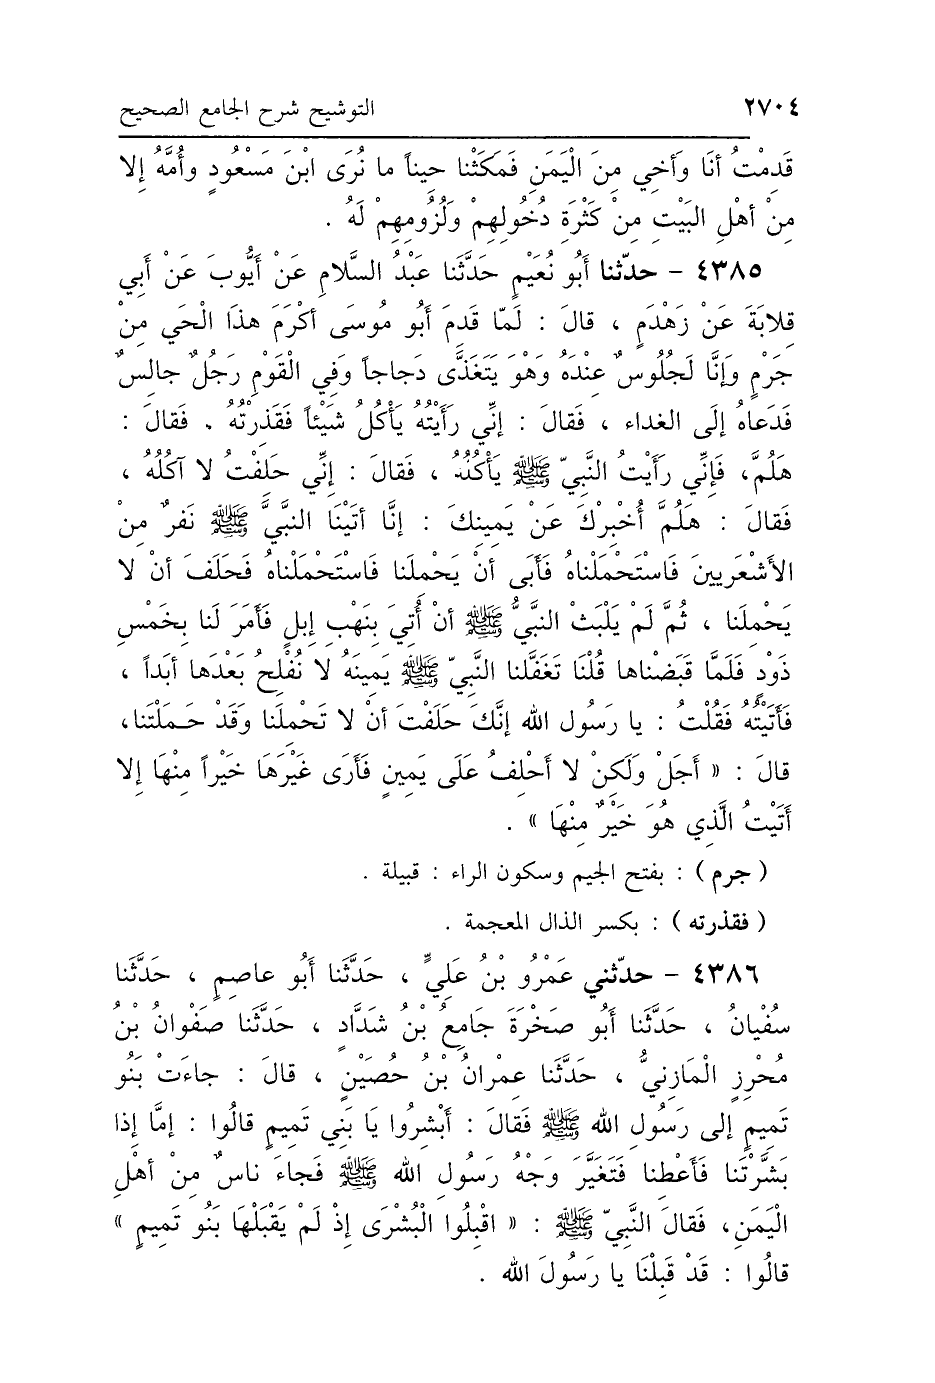 ٢٧٠٤ التوشيح شرح الجامع الصحيح
قَدِمْتُ أنَا وَأَخِي مِنَ الْيَمَنِ فَمَكَثْنا حِيناً ما نُرَى ابْنَ مَسْعُودٍ وأُمَّهُ إلا
مِنْ أهْلِ البَيْتِ مِنْ كَثْرَةِ دُخُولِهِمْ وَلُزُومِهِمْ لَهُ .
٤٣٨٥ - حدّثنا أَبُو نُعَيْمٍ حَدَّثَنا عَبْدُ السَّلامِ عَنْ أيُّوبَ عَنْ أَبِي
قِلابَةَ عَنْ زَهْدَمٍ ، قالَ : لَمّا قَدِمَ أَبُو مُوسَى أكْرَمَ هذَا الْحَي مِنْ
جَرْمٍ وَإنَّا لَجُلُوسٌ عِنْدَهُ وَهْوَ يَتَغَذَّى دَجاجاً وَفِي الْقَوْمِ رَجُلٌ جالِسٌ
فَدَعاهُ إلَى الغداء ، فَقالَ : إنِّي رَأَيْتُهُ يَأْكُلُ شَيْئاً فَقَذِرْتُهُ . فَقالَ :
هَلُمَّ، فَإنِّي رَأَيْتُ النَّبِيّ ﷺ يَأْكُلُهُ ، فَقالَ : إنِّي حَلَفْتُ لا آكُلُهُ ،
فَقالَ : هَلُمَّ أُخْبِرْكَ عَنْ يَمِينِكَ : إنَّا أتَيْنَا النبَّيَّ ﷺ نَفرٌ مِنْ
الأَشْعَرِيينَ فَاسْتَحْمَلْناهُ فَأَبَى أنْ يَحْمِلَنا فَاسْتَحْمَلْناهُ فَحَلَفَ أنْ لا
يَحْمِلَنا ، ثُمَّ لَمْ يَلْبَثْ النبَّيُّ ﷺ أنْ أُتِيَ بِنَهْبِ إبِلٍ فَأَمَرَ لَنا بِخَمْسِ
ذَوْدٍ فَلَمَّا قَبَضْناها قُلْنَا تَغَفَّلنا النَّبِيّ ﷺ يَمِينَهُ لا نُفْلِحُ بَعْدَها أَبَداً ،
فَأَتَيْتُهُ فَقُلْتُ : يا رَسُول الله إنَّكَ حَلَفْتَ أنْ لا تَحْمِلَنا وَقَدْ حَـمَلْتَنا،
قالَ : « أَجَلْ وَلَكِنْ لا أَحْلِفُ عَلَى يَمِينٍ فَأَرَى غَيْرَهَا خَيْراً مِنْهَا إلا
أَتَيْتُ الَّذِي هُوَ خَيْرٌ مِنْهَا » .
( جرم ) : بفتح الجيم وسكون الراء : قبيلة .
( فقذرته ) : بكسر الذال المعجمة .
٤٣٨٦ - حدّثني عَمْرُو بْنُ عَلِيٍّ ، حَدَّثَنا أَبُو عاصِمٍ ، حَدَّثَنا
سُفْيانُ ، حَدَّثَنا أَبُو صَخْرَةَ جَامِعُ بْنُ شَدَّادٍ ، حَدَّثَنا صَفْوانُ بْنُ
مُحْرِزٍ الْمَازِنِيُّ ، حَدَّثَنا عِمْرانُ بْنُ حُصَيْنٍ ، قالَ : جاءَت بَنُو
تَمِيمٍ إلى رَسُولِ الله ﷺ فَقالَ : أَبْشِرُوا يَا بَنِي تَمِيمٍ قالُوا : إمَّا إذا
بَشَّرْتَنا فَأَعْطِنا فَتَغَيَّرَ وَجْهُ رَسُولِ الله ﷺ فَجاءَ ناسٌ مِنْ أهْلِ
الْيَمَنِ، فَقالَ النَّبِيّ ﷺ : « اقْبَلُوا الْبُشْرَى إذْ لَمْ يَقْبَلْهَا بَنُو تَمِيمٍ »
قالُوا : قَدْ قَبِلْنَا يا رَسُولَ الله .